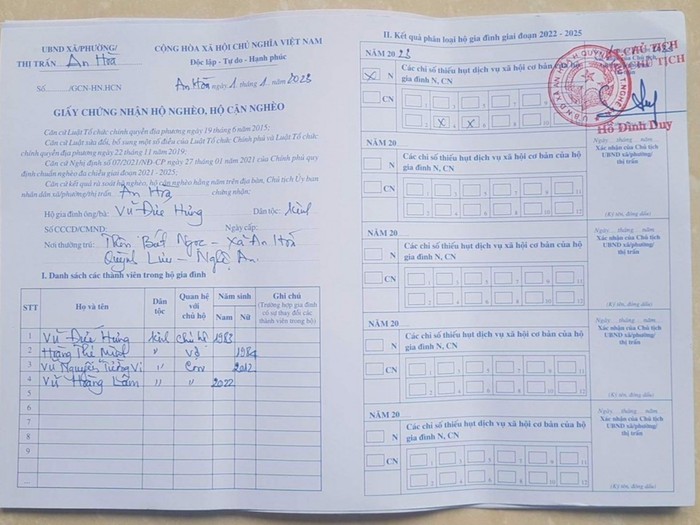 UBND XÃ/PHƯỜNG/
THỊ TRẤN An Hoà
CỘNG HÒA XÃ HỘI CHỦ NGHĨA VIỆT NAM
Độc lập - Tự do - Hạnh phúc
Số: /GCN-HN.HCN
An Hoà ngày 1 tháng 1 năm 2023
GIẤY CHỨNG NHẬN HỘ NGHÈO, HỘ CẬN NGHÈO
Căn cứ Luật Tổ chức chính quyền địa phương ngày 19 tháng 6 năm 2015;
Căn cứ Luật sửa đổi, bổ sung một số điều của Luật Tổ chức Chính phủ và Luật Tổ chức
chính quyền địa phương ngày 22 tháng 11 năm 2019;
Căn cứ Nghị định số 07/2021/NĐ-CP ngày 27 tháng 01 năm 2021 của Chính phủ quy
định chuẩn nghèo đa chiều giai đoạn 2021 - 2025;
Căn cứ kết quả rà soát hộ nghèo, hộ cận nghèo hằng năm trên địa bàn, Chủ tịch Ủy ban
nhân dân xã/phường/thị trấn An Hoà chứng nhận:
Hộ gia đình ông/bà: Vũ Đức Hùng Dân tộc: Kinh
Số CCCD/CMND: Ngày cấp:
Nơi thường trú: Thôn Bát Ngọc - Xã An Hoà
Quỳnh Lưu - Nghệ An.
I. Danh sách các thành viên trong hộ gia đình
STT Họ và tên Dân tộc Quan hệ với chủ hộ Năm sinh Nam Nữ Ghi chú
(Trường hợp hộ gia đình có sự thay đổi các thành viên trong hộ)
1 Vũ Đức Hùng Kinh chủ hộ 1983
2 Hoàng Thị Minh " vợ 1984
3 Vũ Nguyễn Tường Vi " Con 2012
4 Vũ Hoàng Lâm " " 2022
5
6
7
8
9
...
II. Kết quả phân loại hộ gia đình giai đoạn 2022 - 2025
NĂM 2023
X N
CN
Các chỉ số thiếu hụt dịch vụ xã hội cơ bản của hộ
gia đình N, CN
1 3 5 7 9 11
2 X 4 X 6 8 10 12
CHỦ TỊCH
CHỦ TỊCH
Hồ Đình Duy
NĂM 20
N
CN
Các chỉ số thiếu hụt dịch vụ xã hội cơ bản của hộ
gia đình N, CN
1 3 5 7 9 11
2 4 6 8 10 12
Ngày... tháng... năm
Xác nhận của Chủ tịch
UBND xã/phường/
thị trấn
(Ký tên, đóng dấu)
NĂM 20
N
CN
Các chỉ số thiếu hụt dịch vụ xã hội cơ bản của hộ
gia đình N, CN
1 3 5 7 9 11
2 4 6 8 10 12
Ngày... tháng... năm
Xác nhận của Chủ tịch
UBND xã/phường/
thị trấn
(Ký tên, đóng dấu)
NĂM 20
N
CN
Các chỉ số thiếu hụt dịch vụ xã hội cơ bản của hộ
gia đình N, CN
1 3 5 7 9 11
2 4 6 8 10 12
Ngày... tháng... năm
Xác nhận của Chủ tịch
UBND xã/phường/
thị trấn
(Ký tên, đóng dấu)
NĂM 20
N
CN
Các chỉ số thiếu hụt dịch vụ xã hội cơ bản của hộ
gia đình N, CN
1 3 5 7 9 11
2 4 6 8 10 12
Ngày... tháng... năm
Xác nhận của Chủ tịch
UBND xã/phường/
thị trấn
(Ký tên, đóng dấu)